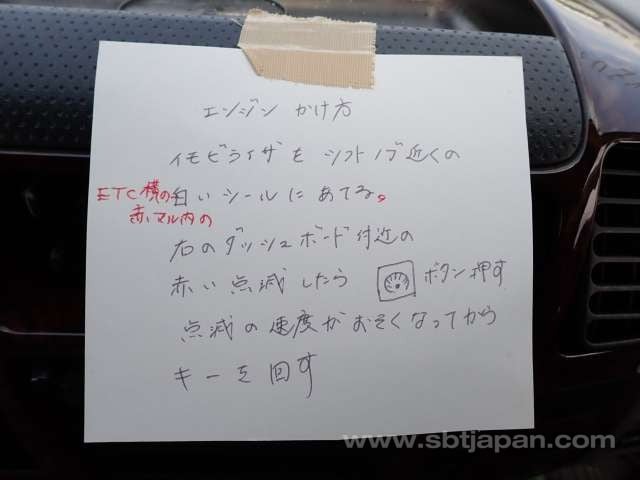 エンジン かけ方
イモビライザを シフトノブ近くの
ETC横の白いシールにあてる。
赤マル内の
右のダッシュボード付近の
赤い点滅したら ボタン押す
点滅の速度がおそくなってから
キーを回す
www.sbtjapan.com